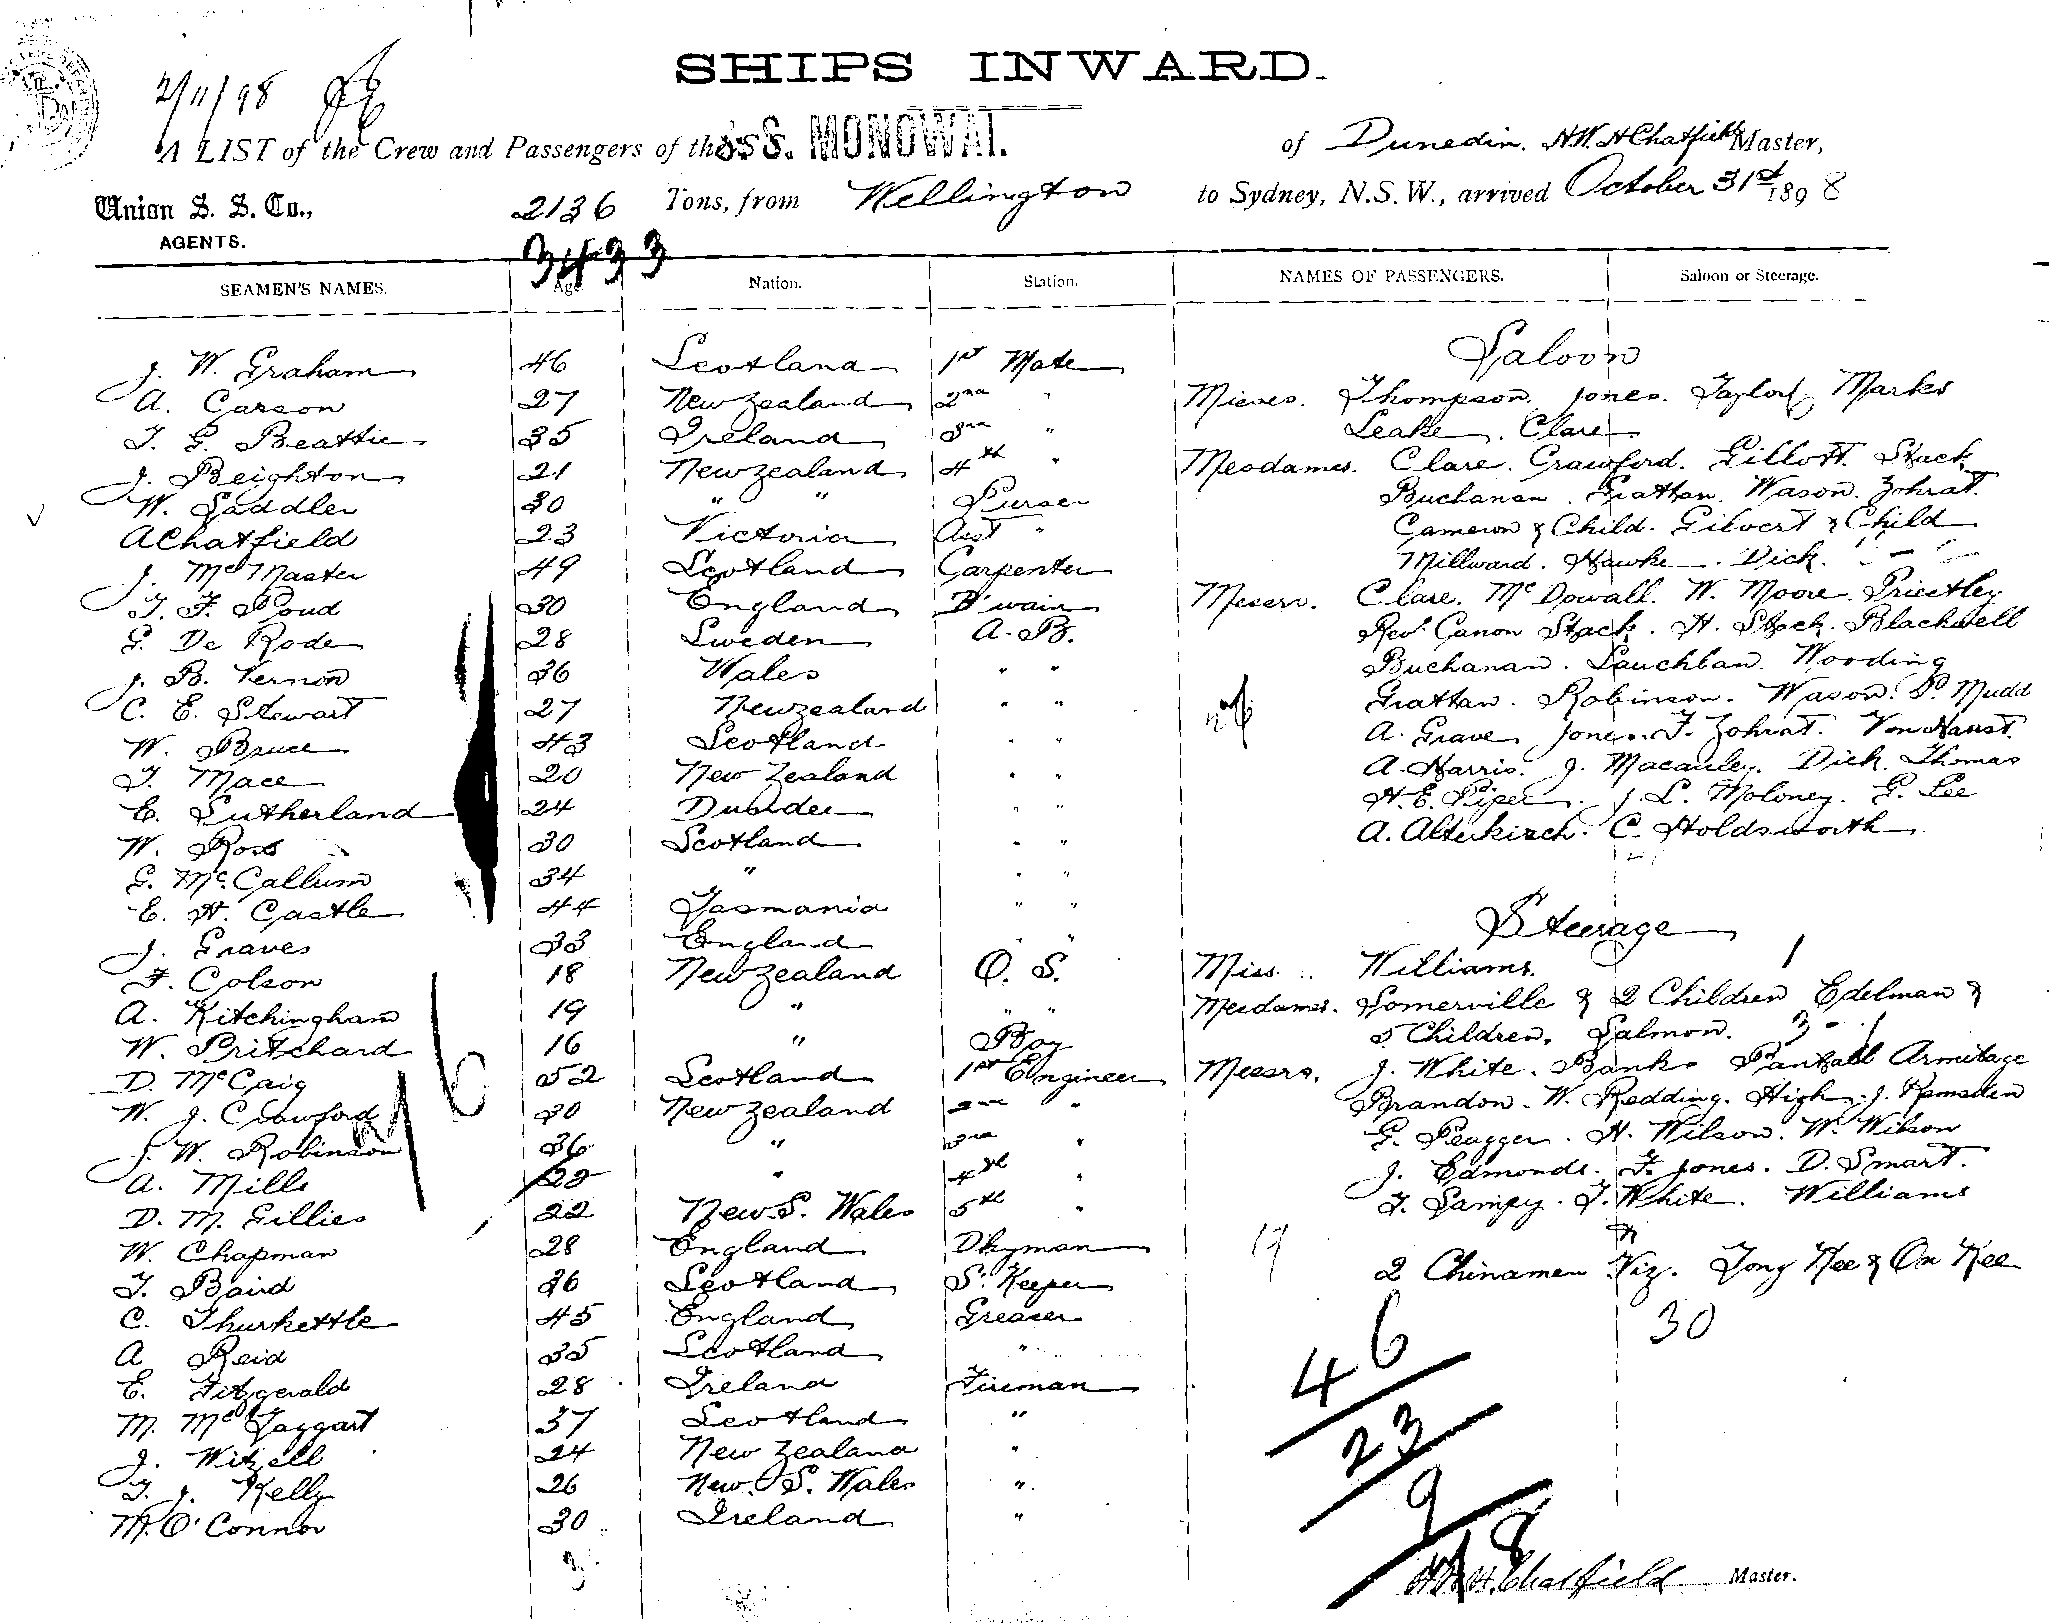 SHIPS INWARD.
2/11/98
A LIST of the Crew and Passengers of the S.S. MONOWAI. of Dunedin. H.W.H Chatfield Master,
Union S. S. Co., 2136 Tons, from Wellington to Sydney, N.S.W., arrived October 31st 1898
AGENTS.
3433
SEAMEN'S NAMES. Age. Nation. Station. NAMES OF PASSENGERS. Saloon or Steerage.
J. W. Graham 46 Scotland 1st Mate
A. Carson 27 New Zealand 2nd "
T. G. Beattie 35 Ireland 3rd "
J. Beighton 21 New Zealand 4th "
W. Saddler 30 " " Purser
A Chatfield 23 Victoria Asst "
J. McMaster 49 Scotland Carpenter
T. F. Poud 30 England B'swain
G. De Rode 28 Sweden A. B.
J. B. Vernon 36 Wales " "
C. E. Stewart 27 Newzealand " "
W. Bruce 43 Scotland " "
T. Mace 20 New Zealand " "
E. Sutherland 24 Dundee " "
W. Ross 30 Scotland " "
G. McCallum 34 " " "
E. H. Castle 44 Tasmania " "
J. Graves 33 England " "
F. Colson 18 New Zealand O. S.
A. Kitchingham 19 " " "
W. Pritchard 16 " Boy
D. McCaig 52 Scotland 1st Engineer
W. J. Crawford 30 New Zealand 2nd "
J. W. Robinson 36 " 3rd "
A. Mills " 4th "
D. M. Gillies 22 New S. Wales 5th "
W. Chapman 28 England Dkyman
T. Baird 36 Scotland S. Keeper
C. Thurkettle 45 England Greaser
A Reid 35 Scotland "
E. Fitzgerald 28 Ireland Fireman
M. McTaggart 37 Scotland "
J. Witzell 24 New Zealand "
T. J. Kelly 26 New. S. Wales "
M. O'Connor 30 Ireland "
Saloon
Misses. Thompson. Jones. Taylor, Marks
Leake. Clare
Mesdames. Clare. Crawford. Gillott. Stack
Buchanan. Grattan. Wason. Zohrat.
Cameron & Child. Gilvert & Child
Millward. Hawke. Dick.
Messrs. Clare. McDowall. W. Moore. Priestley
Revd Canon Stack. H. Stack. Blackwell
Buchanan. Lauchlan. Wooding
Grattan. Robinson. Wason. P. Mudd
A. Grave. Jones. F. Zohrat. Von Haast.
A. Harris. J. Macauley. Dick. Thomas
H. E. Piper. J. L. Moloney. G. Lee
A. Alterkirch. C. Holdsworth
Steerage
Miss. Williams.
Mesdames. Somerville & 2 Children Edelman &
5 Children, Salmon.
Messrs. J. White. Banks Pantall Armitage
Brandon. W. Redding. High. J. Remsden
G. Peugger. H. Wilson. W. Wilson
J. Edmonds. F. Jones. D. Smart.
F. Sampy. T. White. Williams
17
2 Chinamen Viz. Tong Hee & On Kee
30
46
23
9
H.W.H. Chatfield Master.